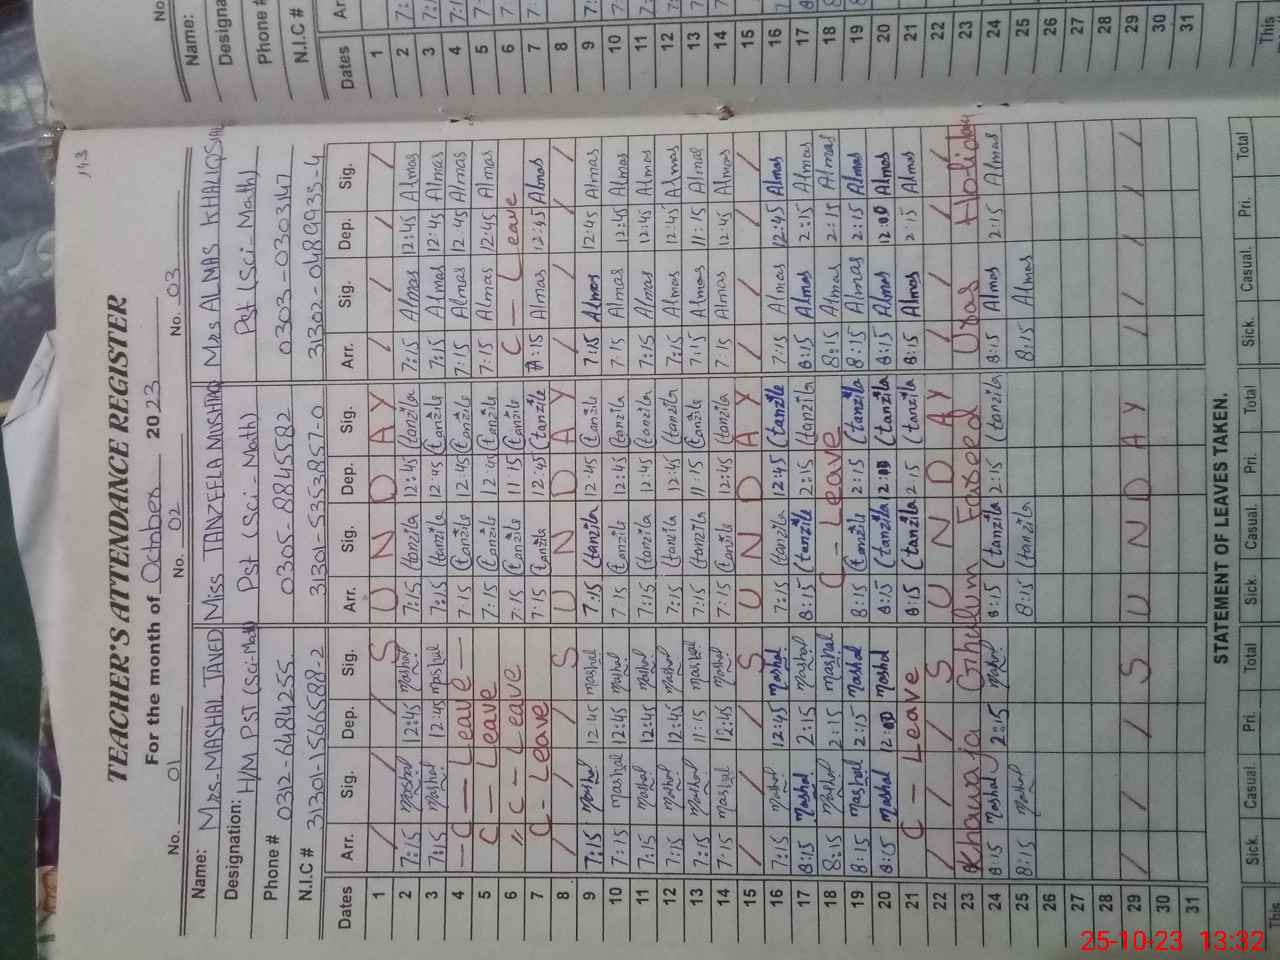 143
TEACHER'S ATTENDANCE REGISTER
For the month of October 2023
No. 01 No. 02 No. 03
Name: Mrs-MASHAL JAVED Miss TANZEELA MUSHTAQ Mrs ALMAS KHALIQ
Designation: H/M PST (Sci-Math) Pst (Sci-Math) Pst (Sci-Math)
Phone # 0312-6484255 0305-8845582 0303-0303147
N.I.C # 31301-1566588-2 31301-5353857-0 31302-0489935-4
Dates Arr. Sig. Dep. Sig. Arr. Sig. Dep. Sig. Arr. Sig. Dep. Sig.
1 S U N D A Y
2 7:15 Mashal 12:45 Mashal 7:15 tanzila 12:45 tanzila 7:15 Almas 12:45 Almas
3 7:15 Mashal 12:45 Mashal 7:15 tanzila 12:45 tanzila 7:15 Almas 12:45 Almas
4 C - Leave 7:15 tanzile 12:45 tanzile 7:15 Almas 12:45 Almas
5 C - Leave 7:15 tanzile 12:45 tanzile 7:15 Almas 12:45 Almas
6 " C - Leave 7:15 tanzile 11:15 tanzile C - Leave
7 C - Leave 7:15 tanzile 12:45 tanzile 7:15 Almas 12:45 Almas
8 S U N D A Y
9 7:15 Mashal 12:45 Mashal 7:15 tanzila 12:45 tanzila 7:15 Almas 12:45 Almas
10 7:15 Mashal 12:45 Mashal 7:15 tanzile 12:45 tanzila 7:15 Almas 12:45 Almas
11 7:15 Mashal 12:45 Mashal 7:15 tanzila 12:45 tanzila 7:15 Almas 12:45 Almas
12 7:15 Mashal 12:45 Mashal 7:15 tanzila 12:45 tanzila 7:15 Almas 12:45 Almas
13 7:15 Mashal 11:15 Mashal 7:15 tanzila 11:15 tanzile 7:15 Almas 11:15 Almas
14 7:15 Mashal 12:45 Mashal 7:15 tanzile 12:45 tanzila 7:15 Almas 12:45 Almas
15 S U N D A Y
16 7:15 Mashal 12:45 Mashal 7:15 tanzila 12:45 tanzile 7:15 Almas 12:45 Almas
17 8:15 Mashal 2:15 Mashal 8:15 tanzile 2:15 tanzila 8:15 Almas 2:15 Almas
18 8:15 Mashal 2:15 Mashal C - Leave 8:15 Almas 2:15 Almas
19 8:15 Mashal 2:15 Mashal 8:15 tanzile 2:15 tanzila 8:15 Almas 2:15 Almas
20 8:15 Mashal 12:00 Mashal 8:15 tanzila 12:00 tanzila 8:15 Almas 12:00 Almas
21 C - Leave 8:15 tanzila 2:15 tanzila 8:15 Almas 2:15 Almas
22 S U N D A Y
23 Khawaja Ghulum Fareed Uras Holiday
24 8:15 Mashal 2:15 Mashal 8:15 tanzila 2:15 tanzila 8:15 Almas 2:15 Almas
25 8:15 Mashal 8:15 tanzila 8:15 Almas
26
27
28
29 S U N D A Y
30
31
STATEMENT OF LEAVES TAKEN.
Sick. Casual. Pri. Total Sick. Casual. Pri. Total Sick. Casual. Pri. Total
This
No.
Name:
Designa
Phone #
N.I.C #
Dates Ar
1
2 7:
3 7:
4 7:1
5 7
6 7
7 7
8
9
10
11
12
13
14
15
16
17
18
19
20
21
22
23
24
25
26
27
28
29
30
31
This
25-10-23 13:32